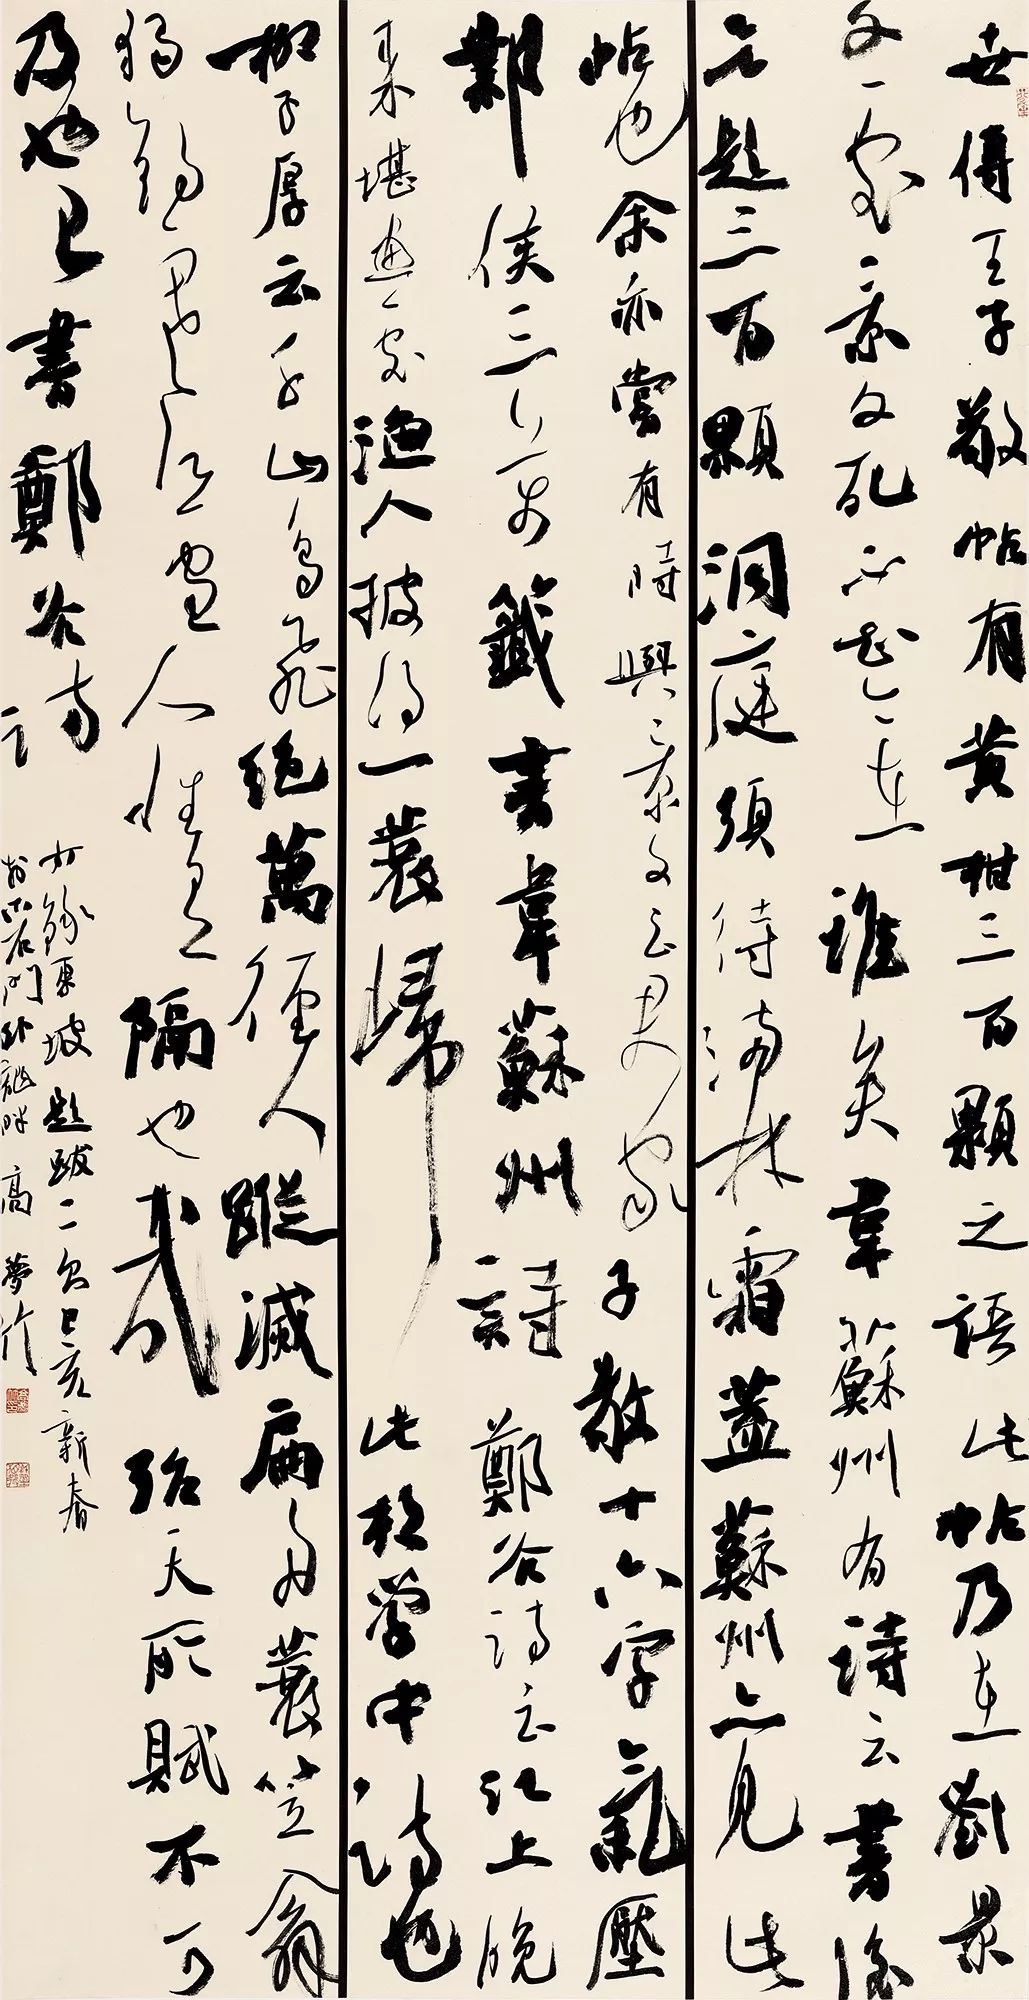 世傳王子敬帖有黄柑三百顆之語此帖乃在劉景
文處景文死不知今在誰矣韋蘇州有詩云書後
欲題三百顆洞庭須待滿林霜蓋蘇州亦見此
帖也余亦嘗有詩與景文云君家子敬十六字氣壓
鄴侯三萬籤書韋蘇州詩鄭谷詩云江上晚
來堪畫處漁人披得一蓑歸此村學中詩也
柳子厚云千山鳥飛絕萬徑人蹤滅扁舟蓑笠翁
獨釣寒江雪人性有隔也哉殆天所賦不可
及也已書鄭谷詩
右錄東坡題跋二則己亥新春
於石門 高夢竹